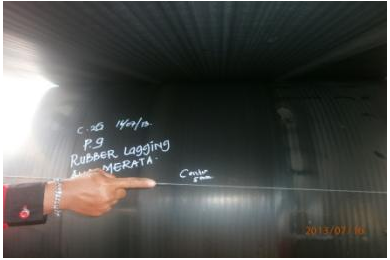 C-2G 14/07/13
P.9
RUBBER Lagging
MERATA.
Center
2013/07/16